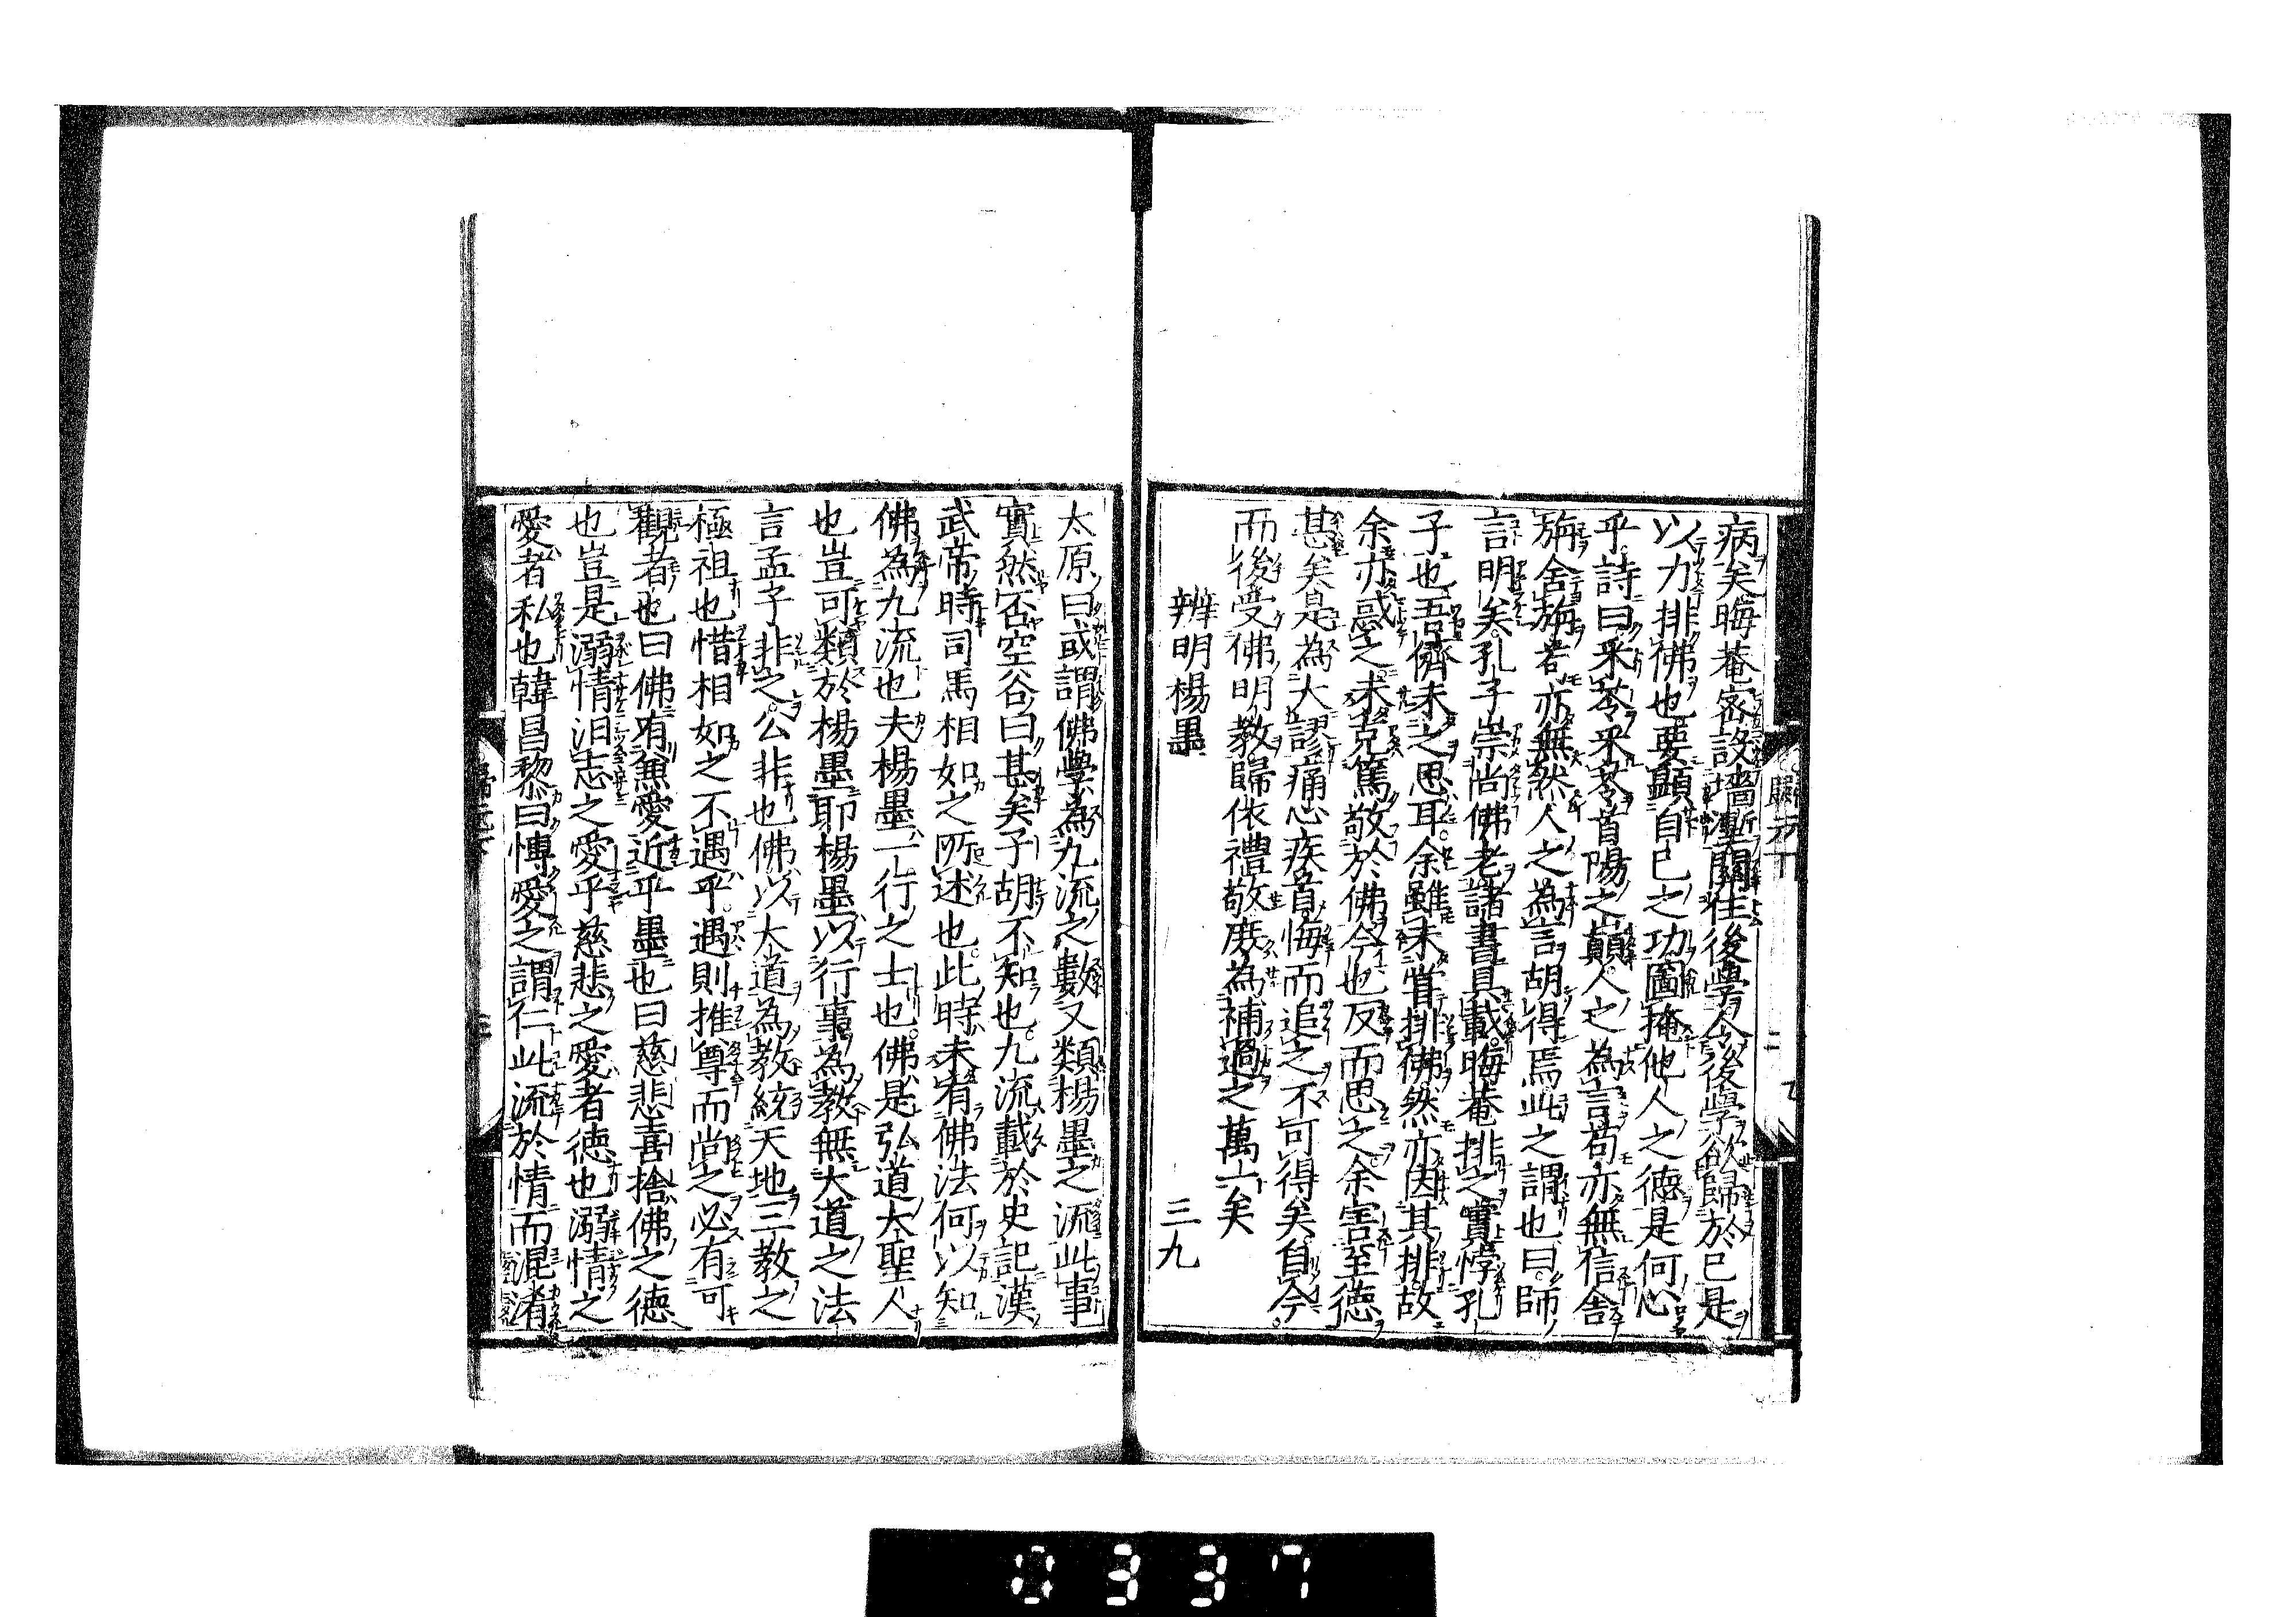 病矣晦菴密設墻塹關住後學令後學欲歸於己是
以力排佛也要顯自己之功圖掩他人之德是何心
乎詩曰采苓采苓首陽之巔人之為言苟亦無信舍
旃舍旃苟亦無然人之為言胡得焉此之謂也曰師
言明矣孔子崇尚佛老諸書具載晦菴排之實悖孔
子也吾儕未之思耳余雖未甞排佛然亦因其排故
余亦惑之未克篤敬於佛今也反而思之余害至德
甚矣是為大謬痛心疾首悔而追之不可得矣自今
而後受佛明教歸依禮敬庶為補過之萬一矣
辨明楊墨 三九
太原曰或謂佛學為九流之數又類楊墨之流此事
實然否空谷曰甚矣子胡不知也九流載於史記漢
武帝時司馬相如之所述也此時未有佛法何以知
佛為九流也夫楊墨一行之士也佛是弘道大聖人
也豈可類於楊墨耶楊墨以行事為教無大道之法
言孟子非之公非也佛以大道為教統天地三教之
極祖也惜相如之不遇乎遇則推尊而尚之必有可
觀者也曰佛有兼愛近乎墨也曰慈悲喜捨佛之德
也豈是溺情汨志之愛乎慈悲之愛者德也溺情之
愛者私也韓昌黎曰愽愛之謂仁此流於情而混淆
歸元下